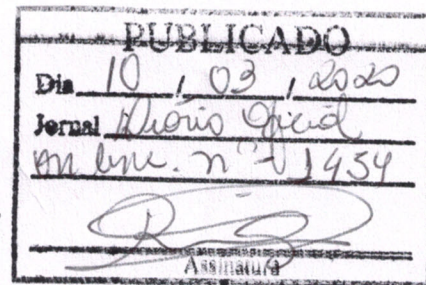 PUBLICADO
Dia 10 / 03 / 2020
Jornal Diário Oficial
on line. nº - 1454
Assinatura